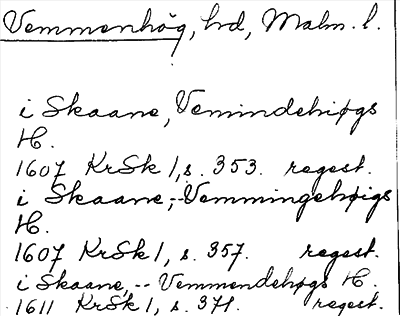 Vemmenhög, hd, Malm. l.
i Skaane, Vemindehøgs
H.
1607 KrSk 1, s. 353. regest.
i Skaane, -- Vemmingehøigs
H.
1607 KrSk 1, s. 357. regest.
i Skaane, -- Vemmendehøgs H.
1611 KrSk 1, s. 371. regest.